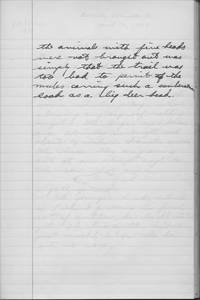 the animals with fine heads
were not brought out was
simply that the trail was
too bad to permit of the
mules carrying such a
load as a big deer head.